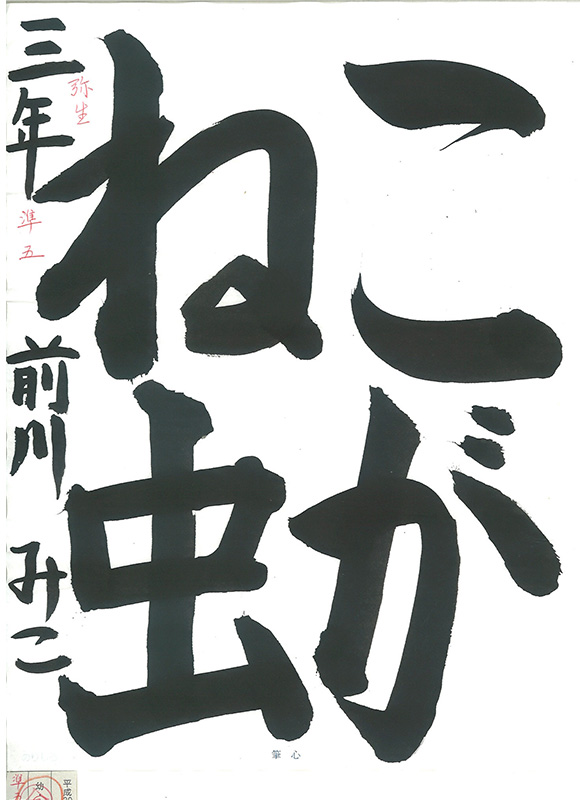 こが
ね虫
三年 前川 みこ
弥生
準五
筆心
準五
平成
幼